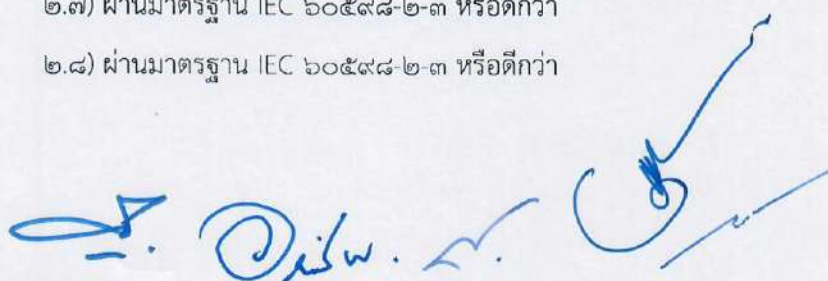 ๒.๗) ผ่านมาตรฐาน IEC ๖๐๕๙๘-๒-๓ หรือดีกว่า
๒.๘) ผ่านมาตรฐาน IEC ๖๐๕๙๘-๒-๓ หรือดีกว่า